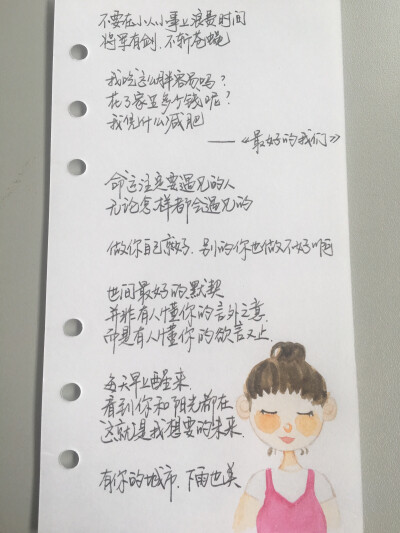 不要在小人小事上浪费时间
将军有剑.不斩苍蝇
我吃这么胖容易吗？
花了家里多少钱呢？
我凭什么减肥
——《最好的我们》
命运注定要遇见的人
无论怎样都会遇见的
做你自己就好.别的你也做不好啊
世间最好的默契
并非有人懂你的言外之意.
而是有人懂你的欲言又止.
每天早上醒来.
看到你和阳光都在
这就是我想要的未来.
有你的城市.下雨也美